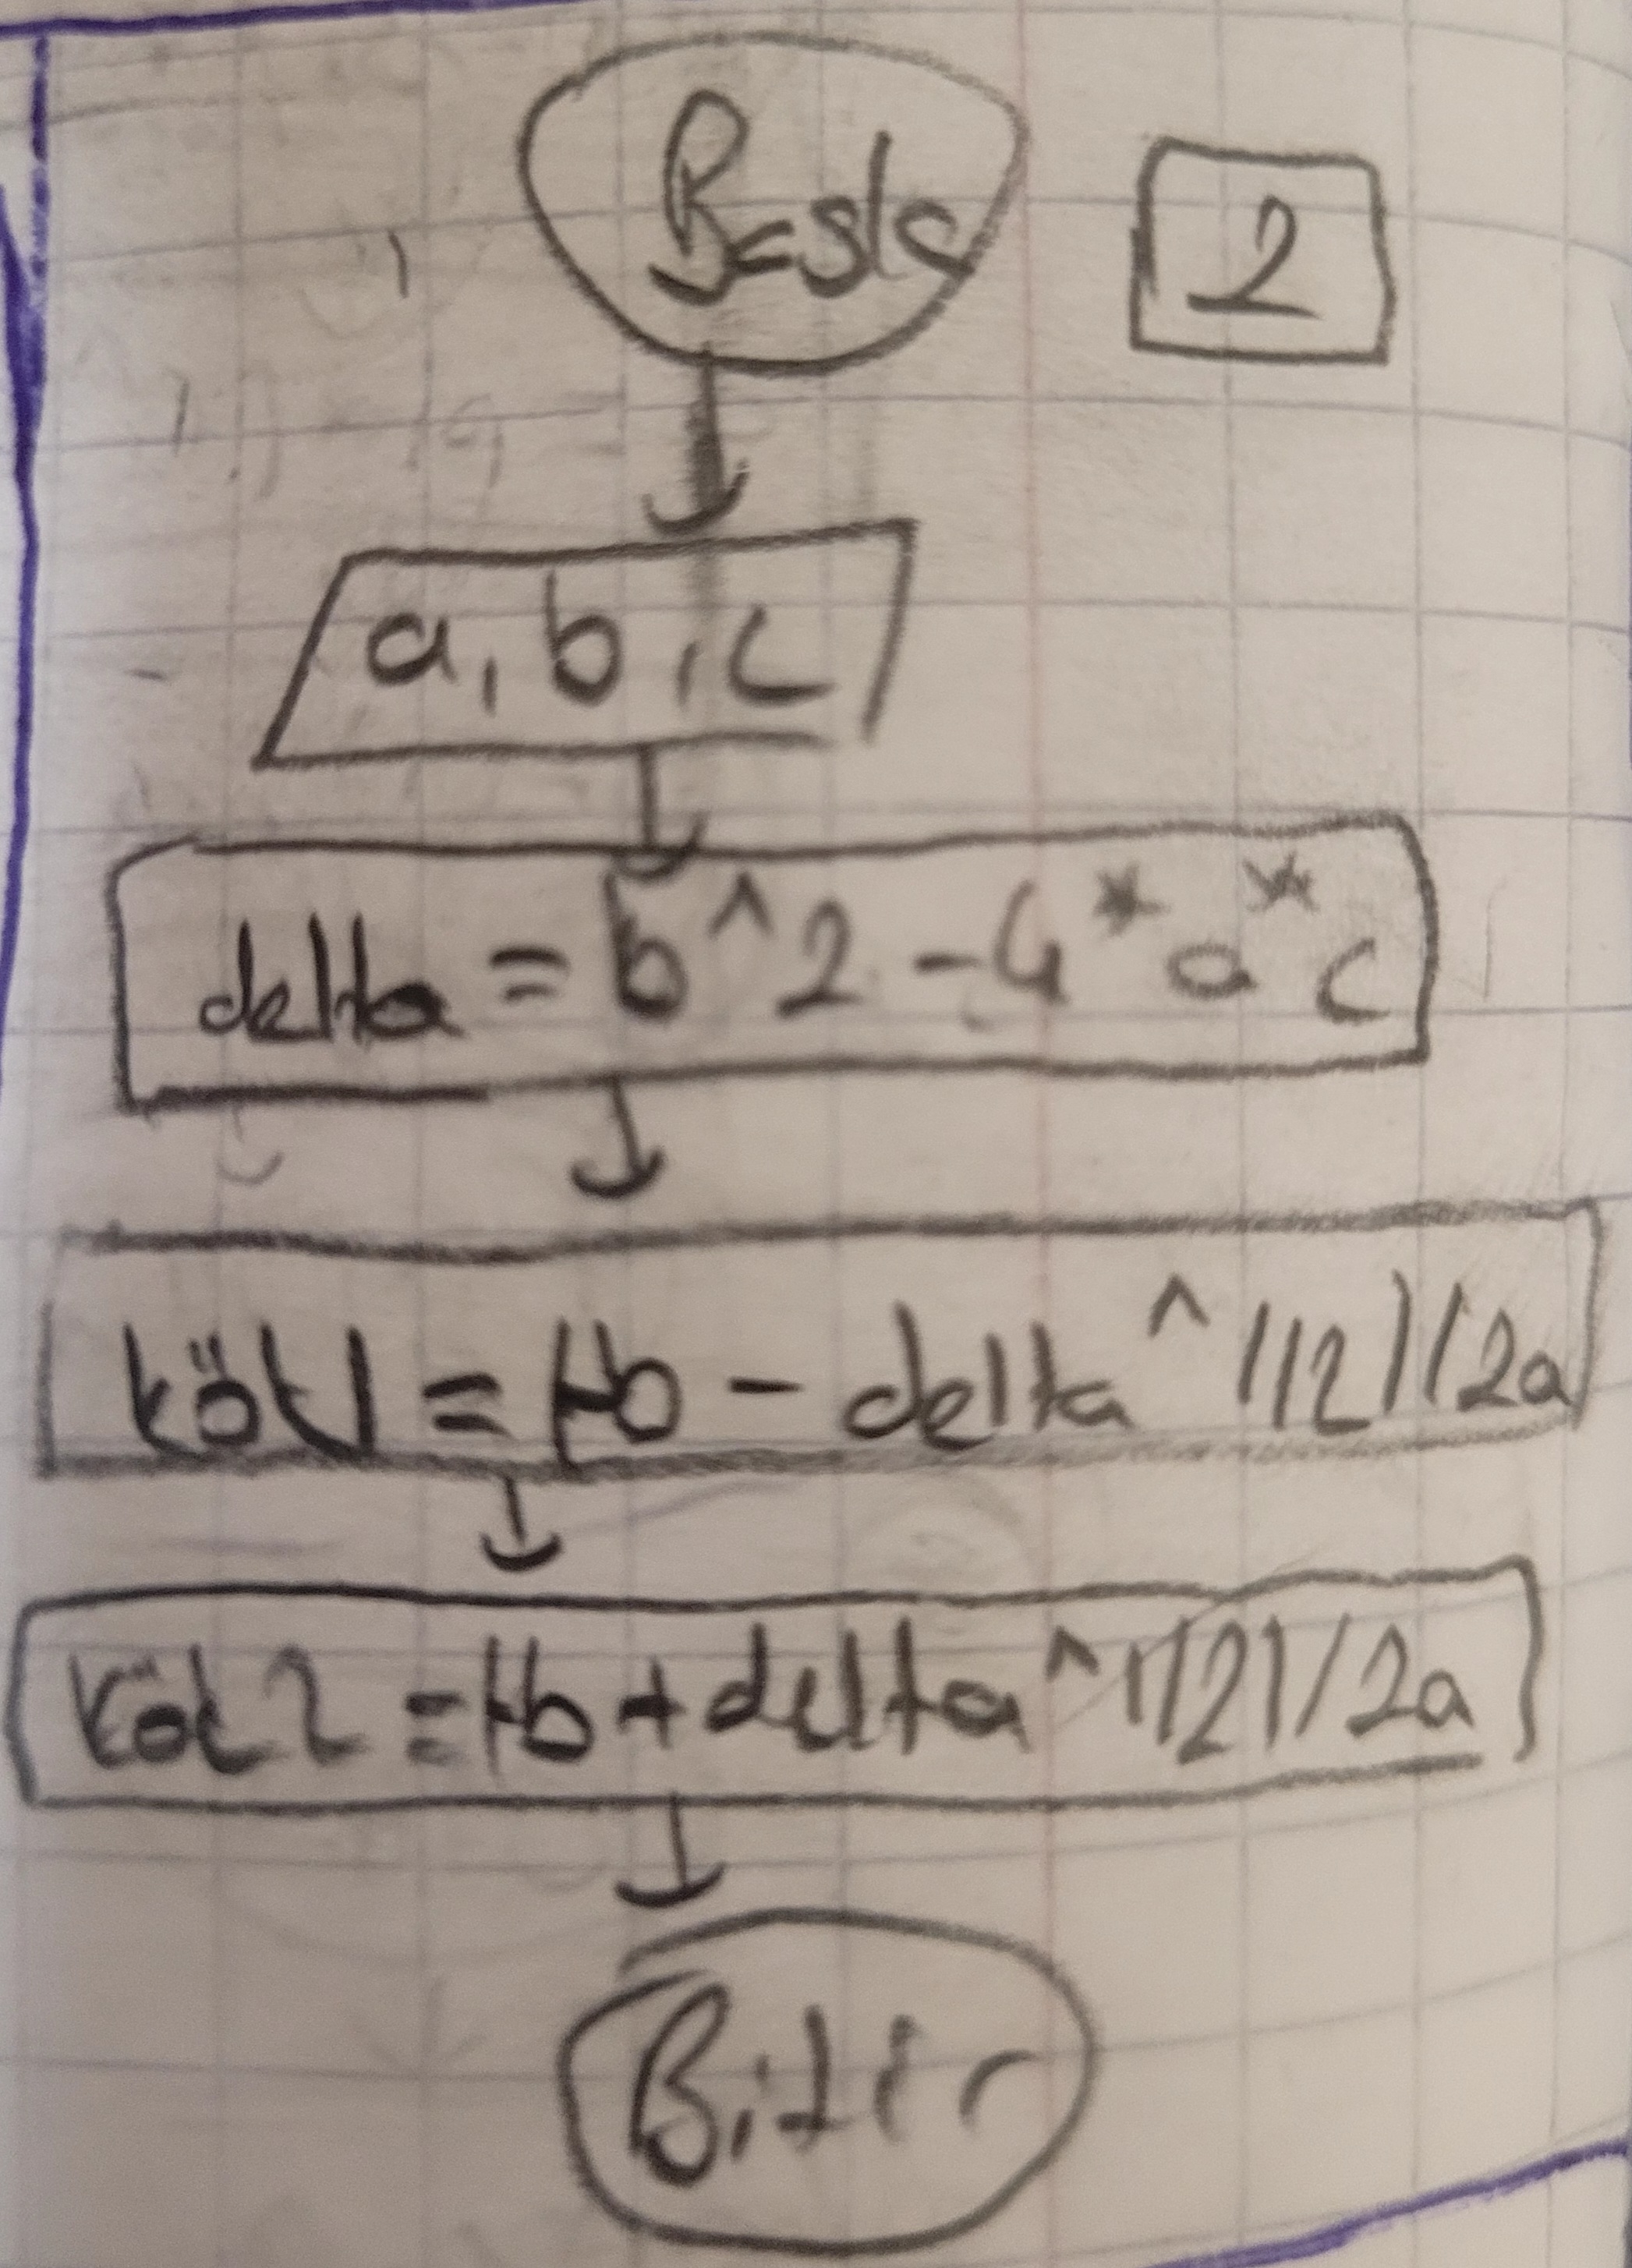 Başla
2
a, b, c
delta = b^2 - 4*a*c
kök1 = (-b - delta^(1/2))/2a
kök2 = (-b + delta^(1/2))/2a
Bitir